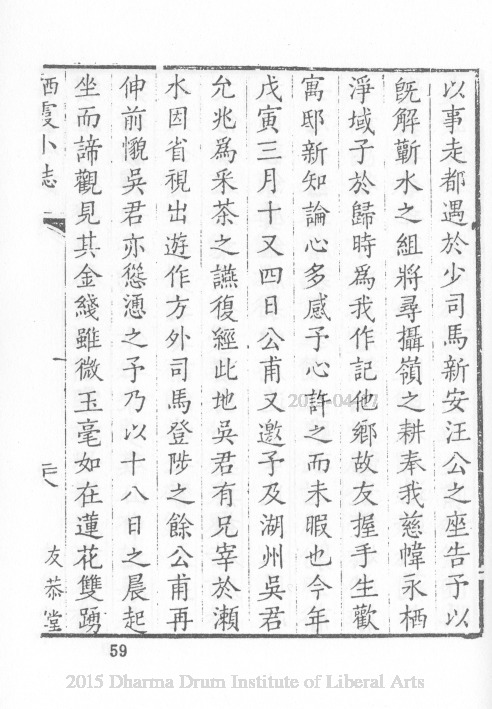 以事走都遇於少司馬新安汪公之座告予以
既解蘄水之組將尋攝嶺之耕奉我慈幃永栖
淨域子於歸時為我作記他鄉故友握手生歡
寓邸新知論心多感予心許之而未暇也今年
戊寅三月十又四日公甫又邀予及湖州吳君
允兆為采茶之讌復經此地吳君有兄宰於瀨
水因省視出遊作方外司馬登陟之餘公甫再
伸前懇吳君亦慫慂之予乃以十八日之晨起
坐而諦觀見其金綫雖微玉毫如在蓮花雙踴
栖霞小志
友恭堂
59
2015 Dharma Drum Institute of Liberal Arts